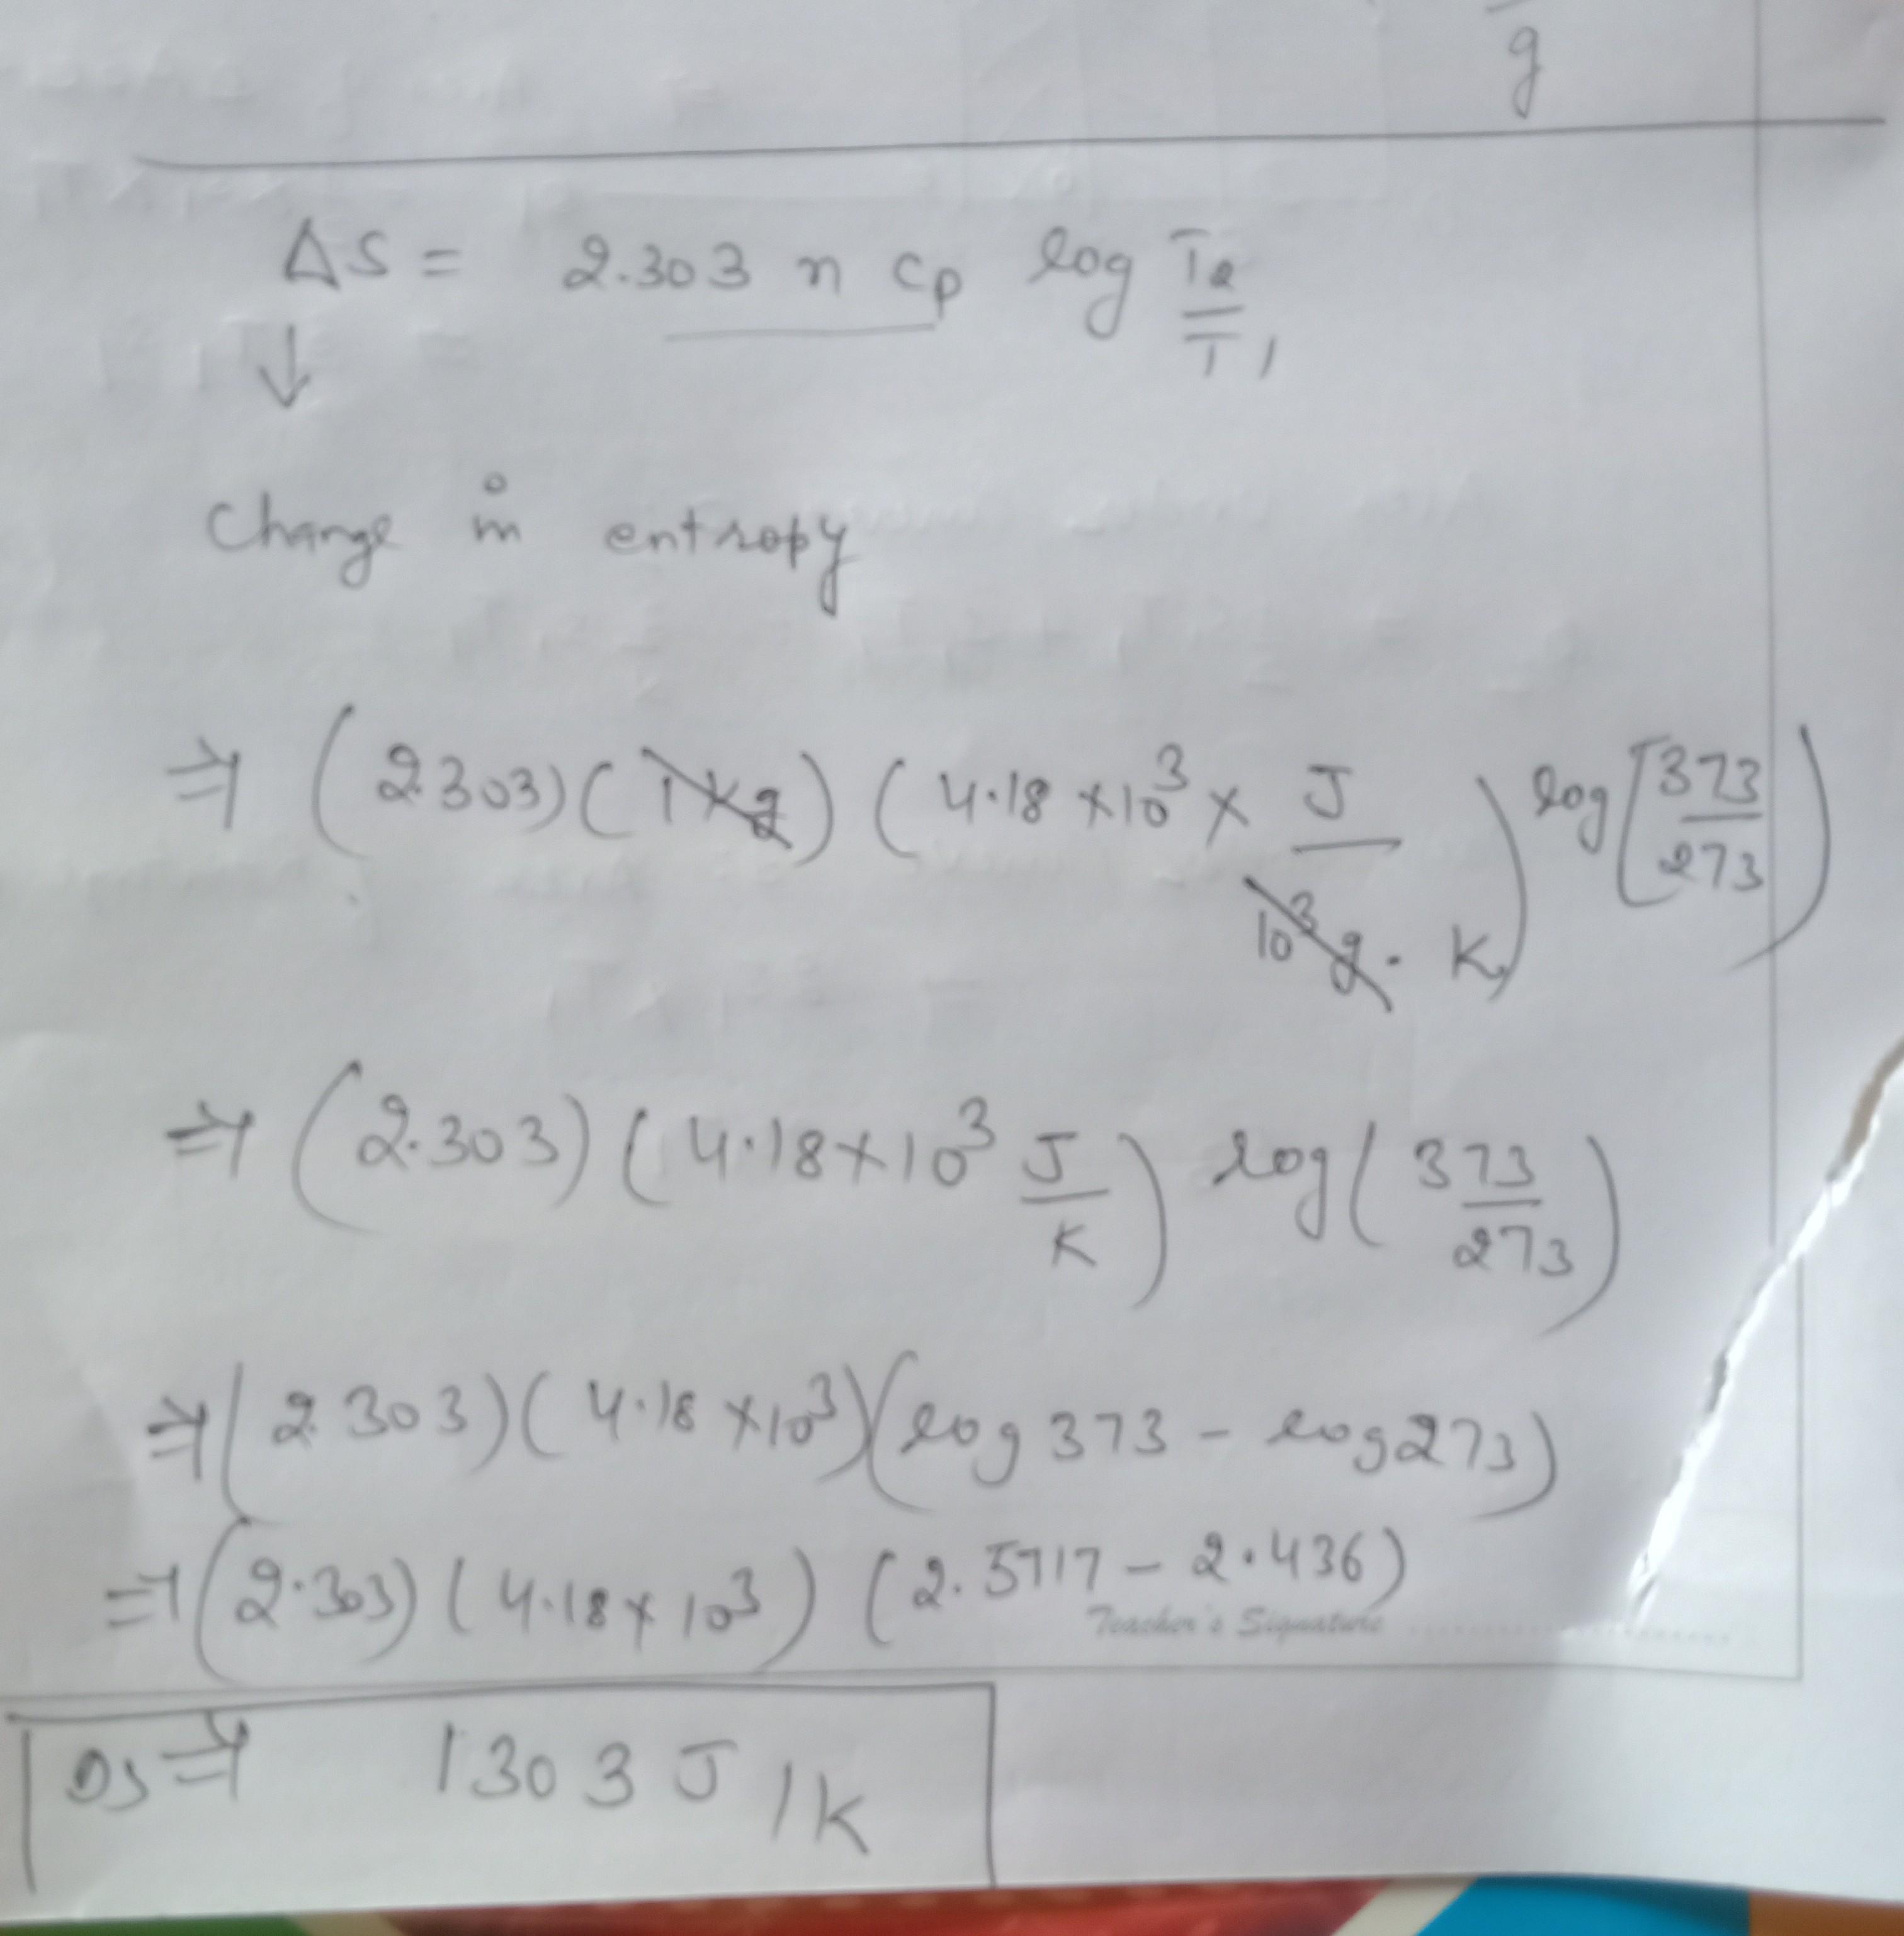 g
ΔS = 2.303 n Cp log T2/T1
↓
Change in entropy
⇒ (2.303)(1kg)(4.18 × 10³ × J/10³g. K) log[373/273])
⇒ (2.303)(4.18×10³ J/K) log(373/273)
⇒ (2.303)(4.18 ×10³)(log 373 - log 273)
⇒ (2.303)(4.18 × 10³) (2.5717 - 2.436)
Teacher's Signature
Ds ⇒ 1303 J/K